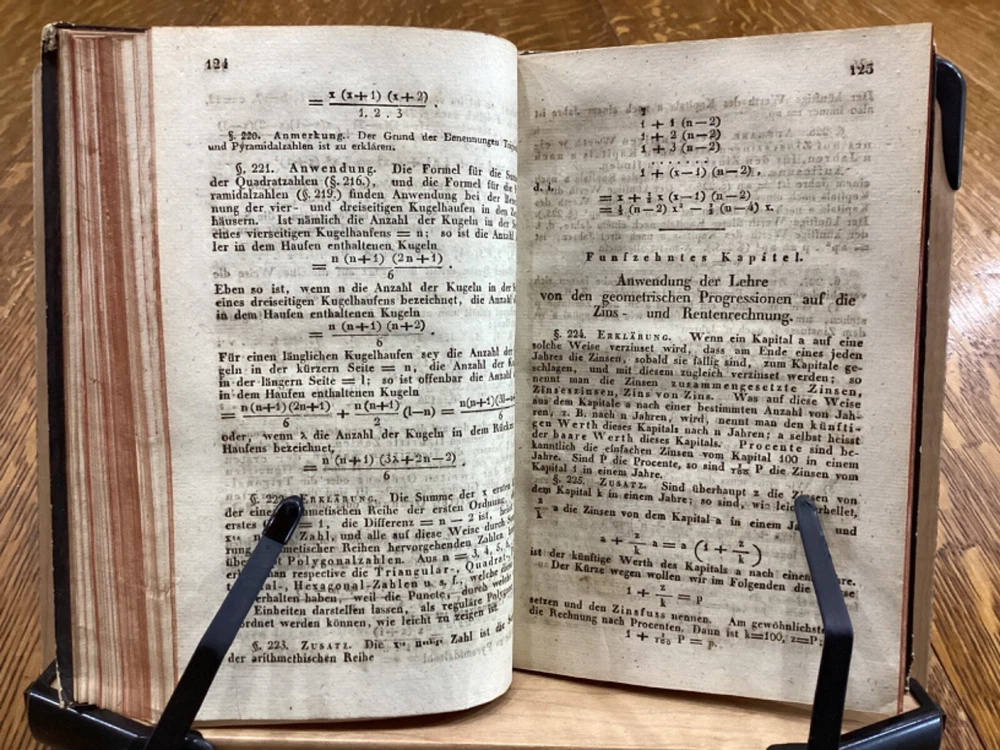 124
= x (x+1) (x+2)
1 . 2 . 3
§. 220. Anmerkung. Der Grund der Benennungen
und Pyramidalzahlen ist zu erklären.
§. 221. Anwendung. Die Formel für die
der Quadratzahlen (§. 216.), und die Formel für die
ramidalzahlen (§. 219.) finden Anwendung bei der
nung der vier- und dreiseitigen Kugelhaufen in den
häusern. Ist nämlich die Anzahl der Kugeln in der
eines vierseitigen Kugelhaufens = n; so ist die Anzahl
ler in dem Haufen enthaltenen Kugeln
= n (n+1) (2n+1) .
6
Eben so ist, wenn n die Anzahl der Kugeln in der
eines dreiseitigen Kugelhaufens bezeichnet, die Anzahl
in dem Haufen enthaltenen Kugeln
= n (n+1) (n+2) .
6
Für einen länglichen Kugelhaufen sey die Anzahl der
geln in der kürzern Seite = n, die Anzahl der
in der längern Seite = l; so ist offenbar die Anzahl
in dem Haufen enthaltenen Kugeln
= n(n+1)(2n+1) + n(n+1) (l—n) = n(n+1)(3l
6 2 6
oder, wenn λ die Anzahl der Kugeln in dem
Haufens bezeichnet,
= n (n+1) (3λ+2n—2) .
6
ERKLÄRUNG. Die Summe der x ersten
der eine metischen Reihe der ersten Ordnung,
erstes = 1, die Differenz = n — 2 ist,
Zahl, und alle auf diese Weise durch
rung metischer Reihen hervorgehenden Zahlen
Polygonalzahlen. Aus n = 3, 4, 5, 6,
man respective die Triangular-, Quadrat-,
-, Hexagonal-Zahlen u. s. f., welche
erhalten haben, weil die Puncte, durch welche
Einheiten darstellen lassen, als reguläre
ordnet werden können, wie leicht zu zeigen ist.
§. 223. ZUSATZ. Die Zahl ist die
der arithmetbischen Reihe
125
1
1 + 1 (n—2)
1 + 2 (n—2)
1 + 3 (n—2)
. . . . . .
1 + (x—1) (n—2) ,
d. i.
= x + ½ x (x—1) (n—2)
= ½ (n—2) x² — ½ (n—4) x.
Funfzehntes Kapitel.
Anwendung der Lehre
von den geometrischen Progressionen auf die
Zins- und Rentenrechnung.
§. 224. ERKLÄRUNG. Wenn ein Kapital a auf eine
solche Weise verzinset wird, dass am Ende eines jeden
Jahres die Zinsen, sobald sie fällig sind, zum Kapitale ge-
schlagen, und mit diesem zugleich verzinset werden; so
nennt man die Zinsen zusammengesetzte Zinsen,
Zinseszinsen, Zins von Zins. Was auf diese Weise
aus dem Kapitale a nach einer bestimmten Anzahl von Jah-
ren, z. B. nach n Jahren, wird, nennt man den künfti-
gen Werth dieses Kapitals nach n Jahren; a selbst heisst
der baare Werth dieses Kapitals. Procente sind be-
kanntlich die einfachen Zinsen vom Kapital 100 in einem
Jahre. Sind P die Procente, so sind 1/100 P die Zinsen vom
Kapital 1 in einem Jahre.
§. 225. ZUSATZ. Sind überhaupt z die Zinsen von
dem Kapital k in einem Jahre; so sind, wie leicht erhellet,
z/k a die Zinsen von dem Kapital a in einem und
a + z/k a = a (1 + z/k)
ist der künftige Werth des Kapitals a nach einem
Der Kürze wegen wollen wir im Folgenden die
1 + z/k = p
setzen und den Zinsfuss nennen. Am gewöhnlichsten
die Rechnung nach Procenten. Dann ist k=100, z=P;
1 + 1/100 P = p.